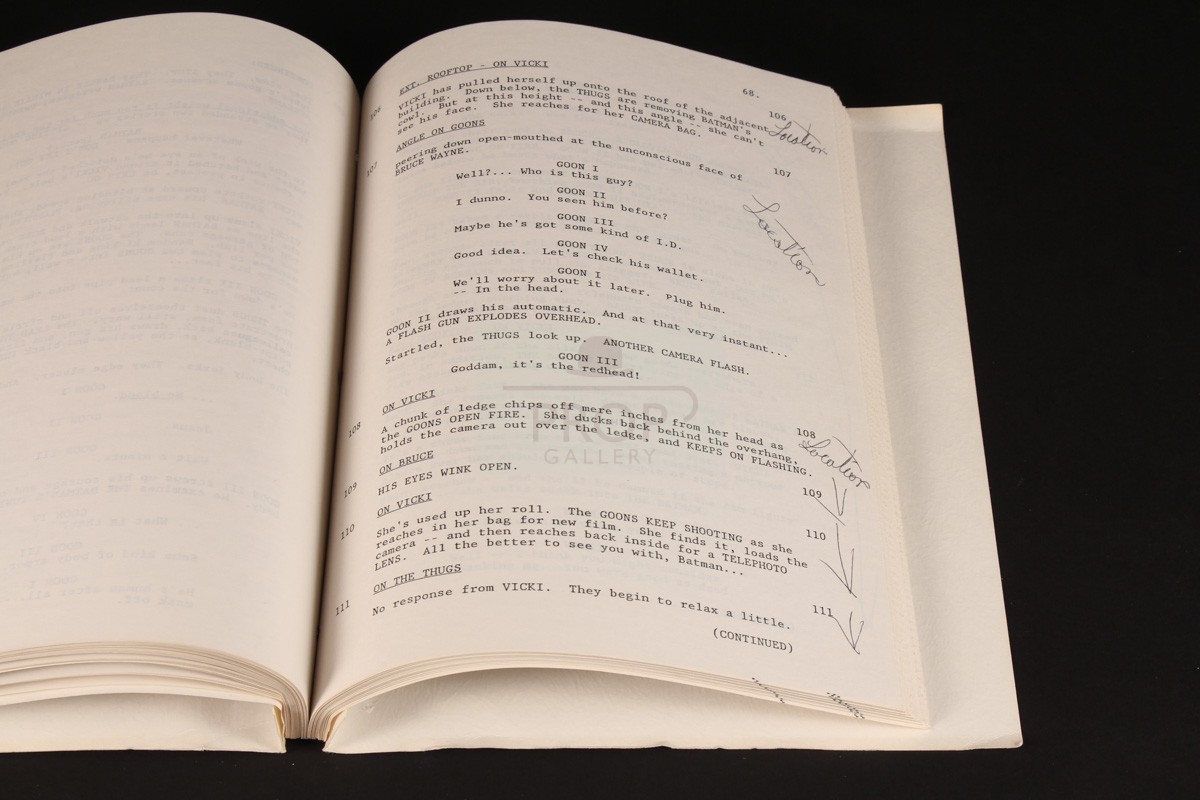 68.
EXT. ROOFTOP - ON VICKI
106 VICKI has pulled herself up onto the roof of the adjacent 106
building. Down below, the THUGS are removing BATMAN's Location
cowl. But at this height -- and this angle -- she can't
see his face. She reaches for her CAMERA BAG.
ANGLE ON GOONS
107 peering down open-mouthed at the unconscious face of 107
BRUCE WAYNE.
GOON I
Well?... Who is this guy?
GOON II
I dunno. You seen him before?
Location
GOON III
Maybe he's got some kind of I.D.
GOON IV
Good idea. Let's check his wallet.
GOON I
We'll worry about it later. Plug him.
-- In the head.
GOON II draws his automatic. And at that very instant...
A FLASH GUN EXPLODES OVERHEAD.
Startled, the THUGS look up. ANOTHER CAMERA FLASH.
GOON III
Goddam, it's the redhead!
PROP
GALLERY
ON VICKI
108 A chunk of ledge chips off mere inches from her head as 108
the GOONS OPEN FIRE. She ducks back behind the overhang, Location
holds the camera out over the ledge, and KEEPS ON FLASHING.
ON BRUCE
109 HIS EYES WINK OPEN. 109
ON VICKI
110 She's used up her roll. The GOONS KEEP SHOOTING as she 110
reaches in her bag for new film. She finds it, loads the
camera -- and then reaches back inside for a TELEPHOTO
LENS. All the better to see you with, Batman...
ON THE THUGS
111 No response from VICKI. They begin to relax a little. 111
(CONTINUED)